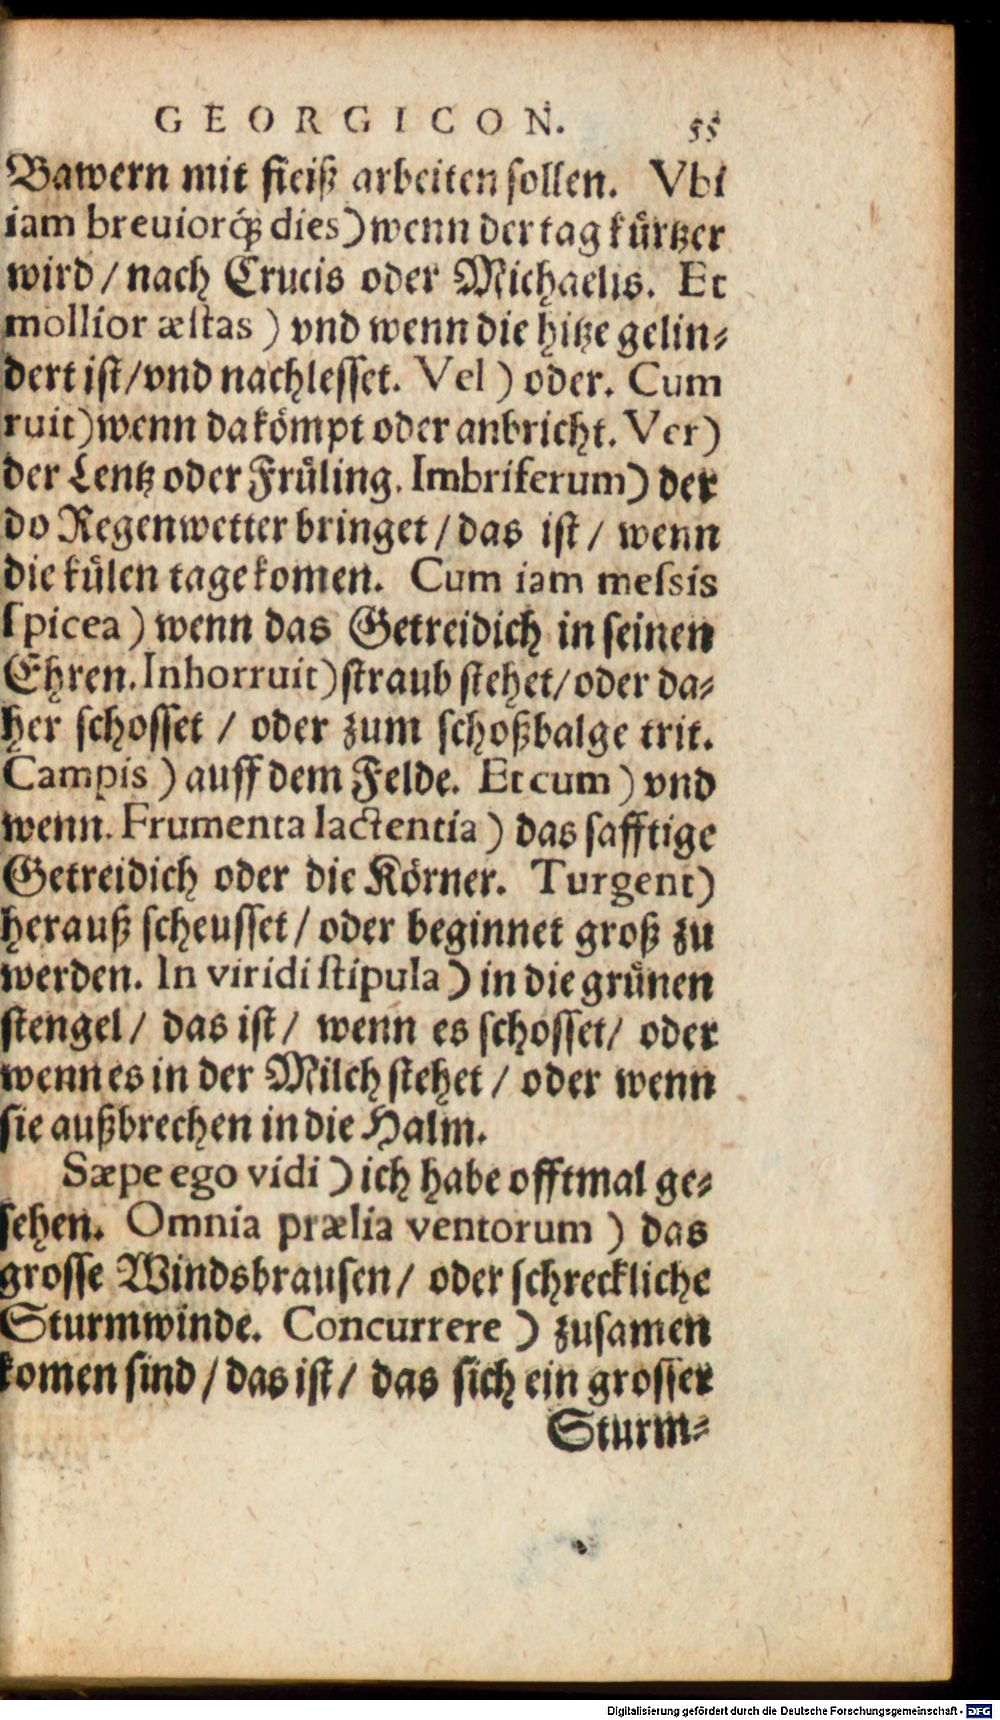 GEORGICON. 55
Bawern mit fleiß arbeiten sollen. Vbi
iam breuiorq́ꝫ dies) wenn der tag kuͤrtzer
wird / nach Crucis oder Michaelis. Et
mollior æstas) vnd wenn die hitze gelin⸗
dert ist/vnd nachlesset. Vel) oder. Cum
ruit) wenn da koͤmpt oder anbricht. Ver)
der Lentz oder Fruͤling. Imbriferum) der
do Regenwetter bringet / das ist / wenn
die kuͤlen tage komen. Cum iam messis
spicea) wenn das Getreidich in seinen
Ehren. Inhorruit) straub stehet/oder da⸗
her schosset / oder zum schoßbalge trit.
Campis) auff dem Felde. Et cum) vnd
wenn. Frumenta lactentia) das safftige
Getreidich oder die Koͤrner. Turgent)
herauß scheusset / oder beginnet groß zu
werden. In viridi stipula) in die gruͤnen
stengel / das ist / wenn es schosset / oder
wenn es in der Milch stehet / oder wenn
sie außbrechen in die Halm.
Sæpe ego vidi) ich habe offtmal ge⸗
sehen. Omnia prælia ventorum) das
grosse Windsbrausen / oder schreckliche
Sturmwinde. Concurrere) zusamen
komen sind / das ist / das sich ein grosser
Sturm⸗
Digitalisierung gefördert durch die Deutsche Forschungsgemeinschaft - DFG